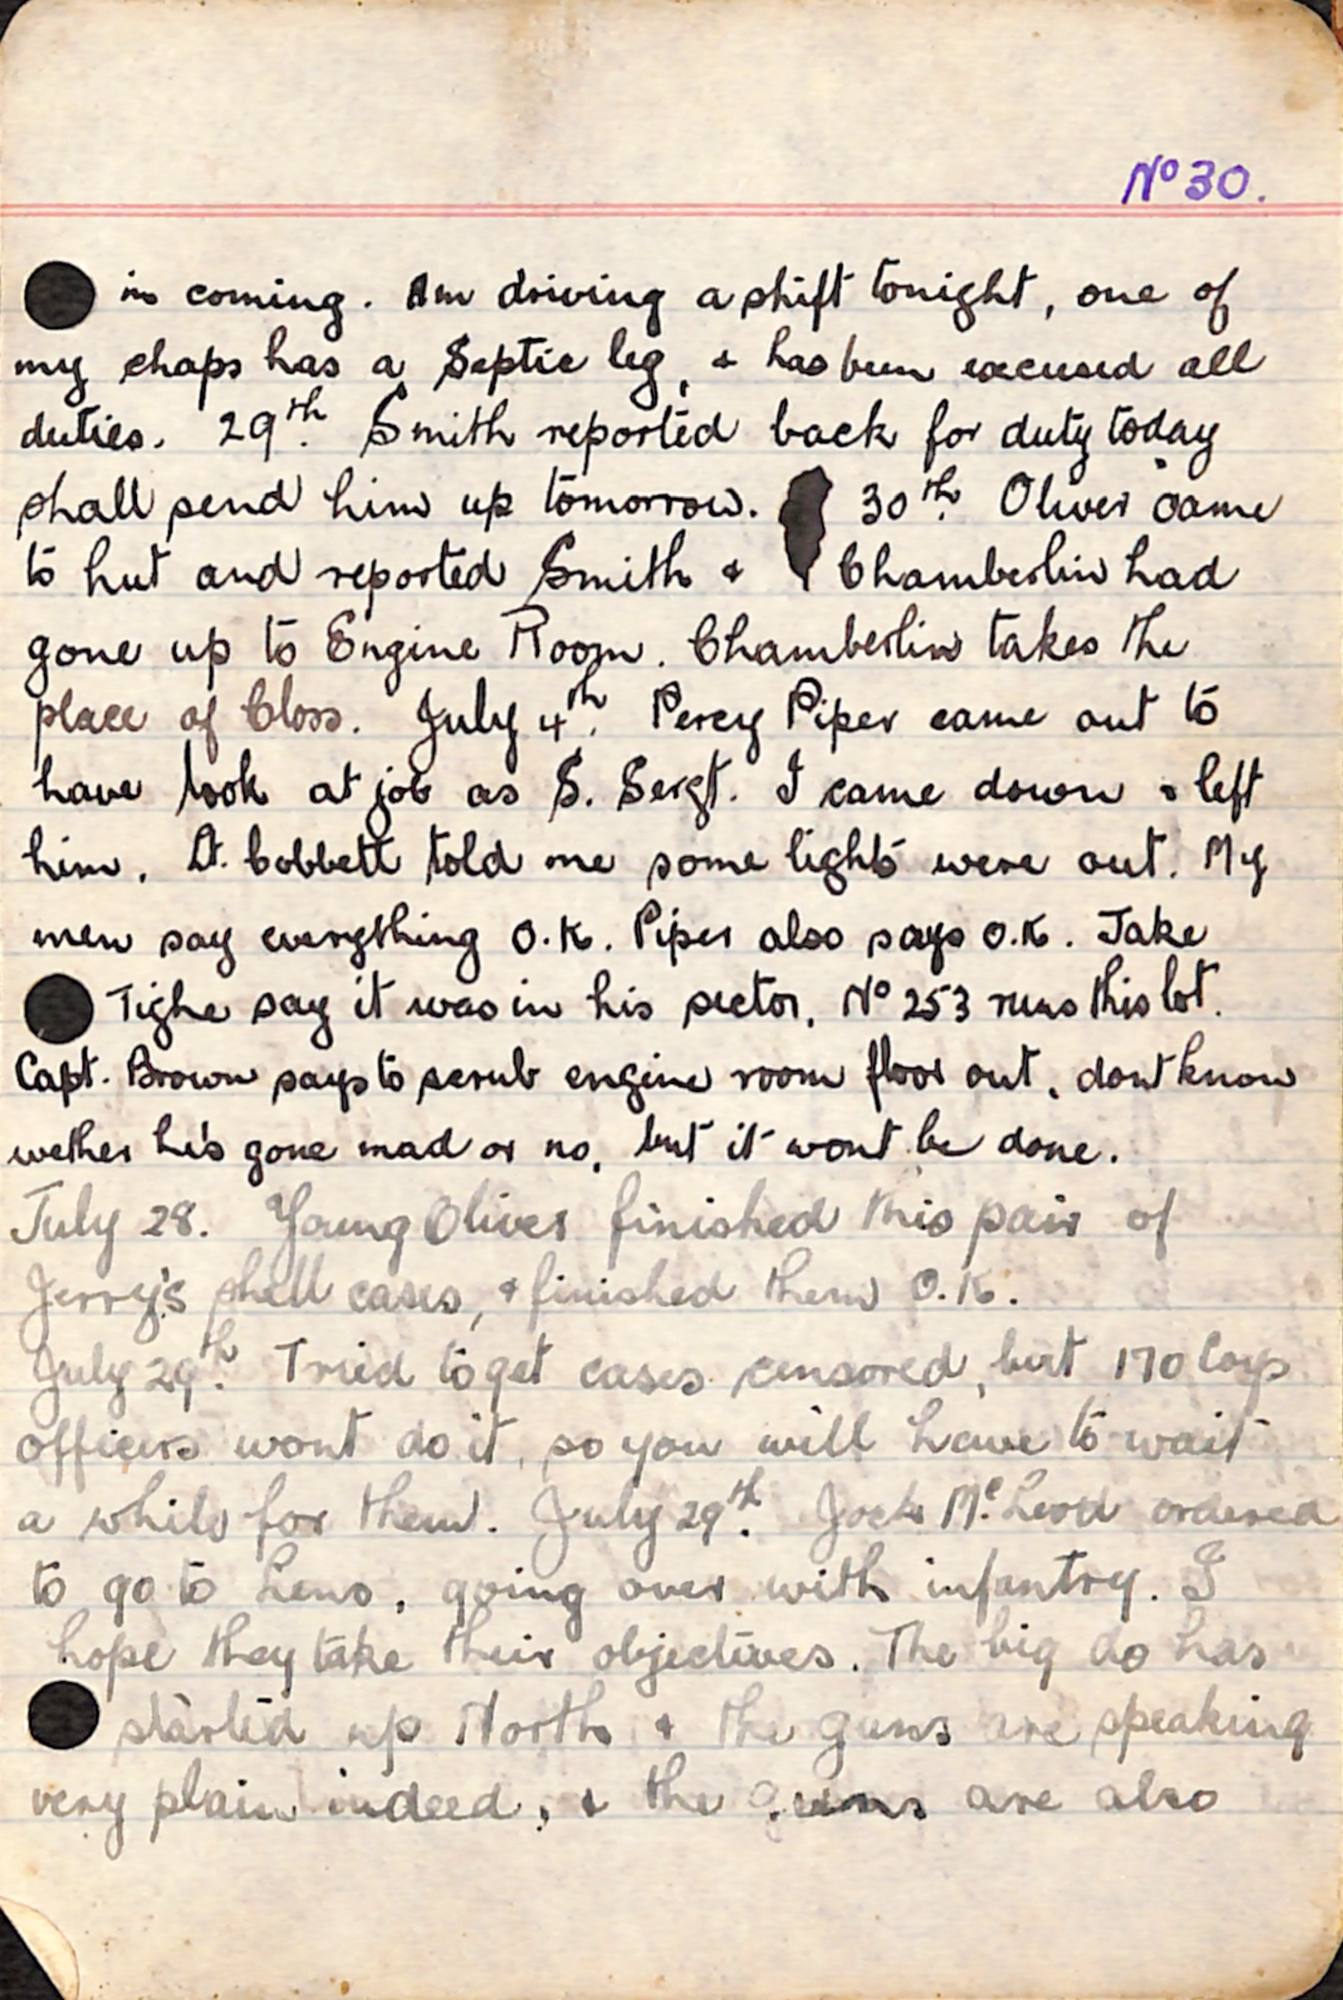 No 30.
in coming. Am driving a shift tonight, one of
my chaps has a Septic leg, & has been excused all
duties. 29th. Smith reported back for duty today
shall send him up tomorrow. 30th. Oliver came
to hut and reported Smith & Chamberlin had
gone up to Engine Room. Chamberlin takes the
place of Closs. July 4th. Percy Piper came out to
have look at job as S. Sergt. I came down & left
him. Lt. Cobbett told me some lights were out. My
men say everything O.K. Piper also says O.K. Jake
Tighe say it was in his sector, No 253 runs this lot.
Capt. Brown says to scrub engine room floor out, dont know
wether he's gone mad or no, but it wont be done.
July 28. Young Oliver finished this pair of
Jerry's shell cases, & finished them O.K.
July 29th. Tried to get cases censored, but 170 Coys
officers wont do it, so you will have to wait
a while for them. July 29th. Jock McLeod ordered
to go to Lens, going over with infantry. I
hope they take their objectives. The big do has
started up North & the guns are speaking
very plain indeed, & the guns are also